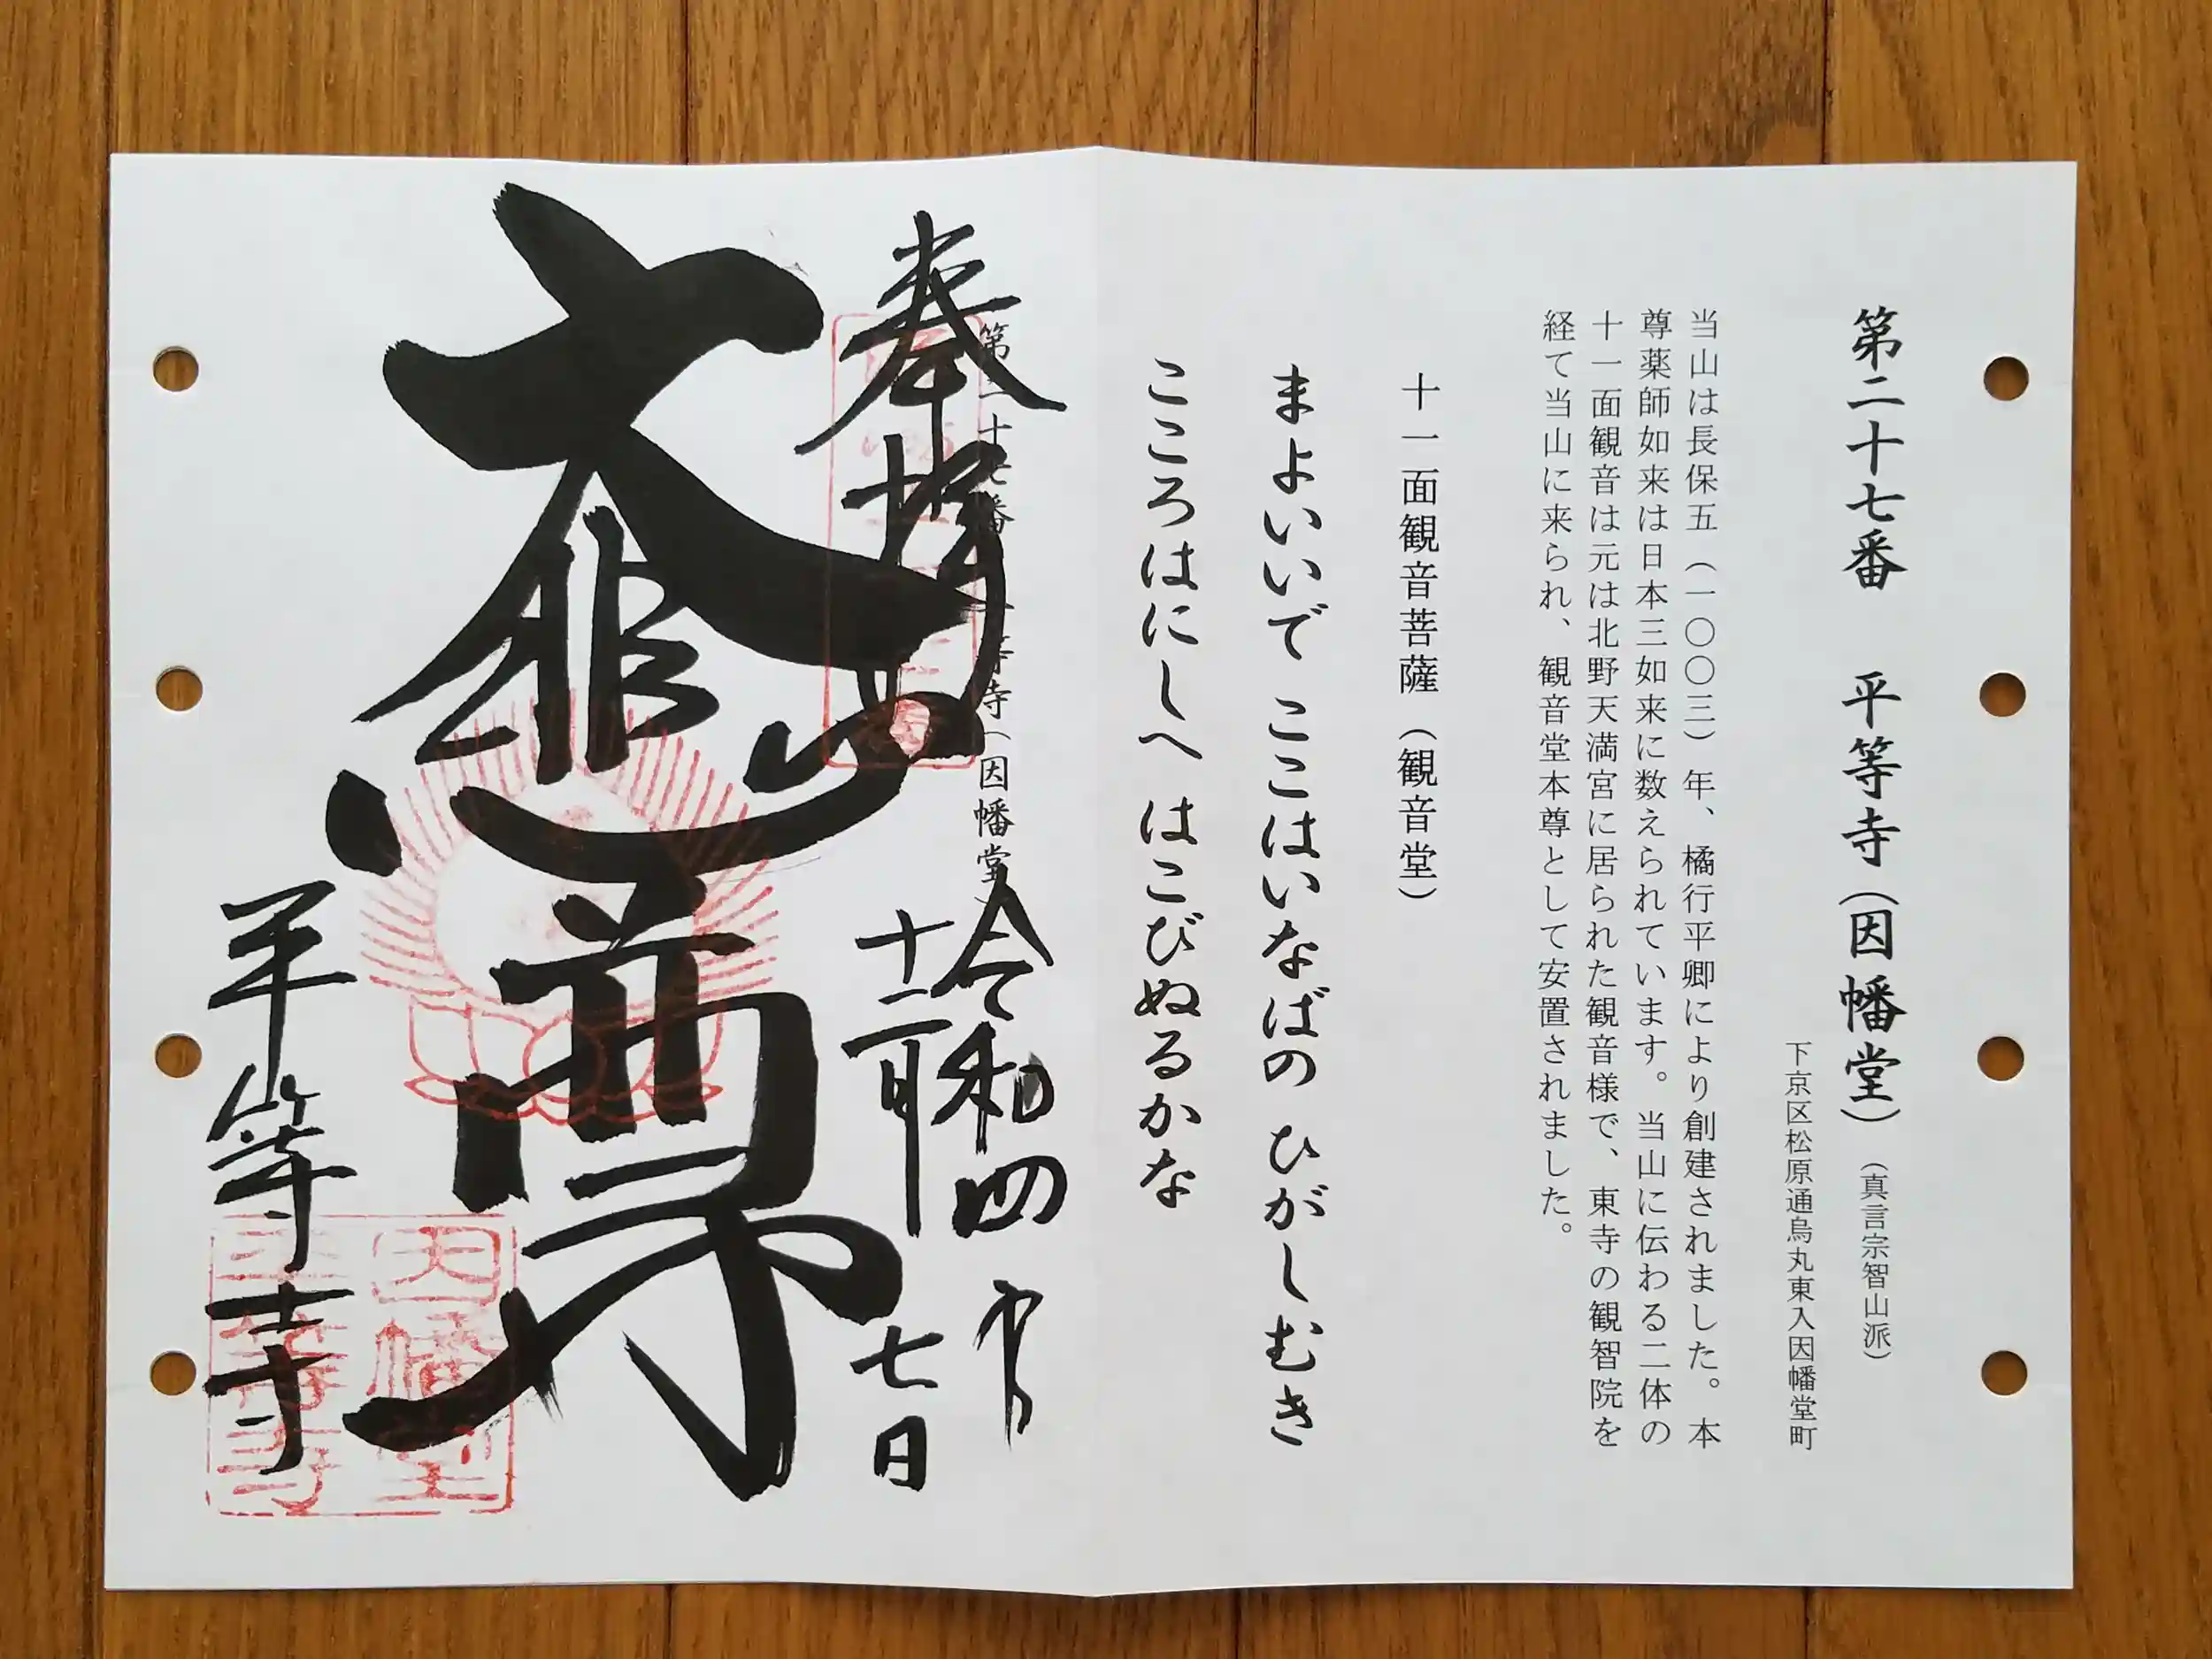 第二十七番 平等寺（因幡堂）（真言宗智山派）
下京区松原通烏丸東入因幡堂町
当山は長保五（一〇〇三）年、橘行平卿により創建されました。本
尊薬師如来は日本三如来に数えられています。当山に伝わる二体の
十一面観音は元は北野天満宮に居られた観音様で、東寺の観智院を
経て当山に来られ、観音堂本尊として安置されました。
十一面観音菩薩（観音堂）
まよいいで ここはいなばの ひがしむき
こころはにしへ はこびぬるかな
第二十七番 平等寺（因幡堂）
奉拝
令和四年
十二月
七日
大悲尊
平等寺
因幡堂
平等寺